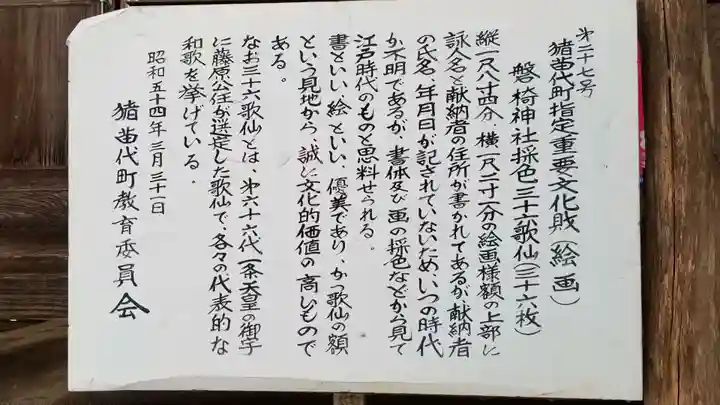 第二十七号
猪苗代町指定重要文化財(絵画)
磐椅神社採色三十六歌仙(三十六枚)
縦一尺八寸四分、横一尺二寸一分の絵画様額の上部に
詠人名と献納者の住所が書かれてあるが、献納者
の氏名、年月日が記されていないため、いつの時代
か不明であるが、書体及び画の採色などから見て
江戸時代のものと思料せられる。
書といい、絵といい、優美であり、かつ歌仙の額
という見地から、誠に文化的価値の高いもので
ある。
なお三十六歌仙とは、第六十六代一条天皇の御宇
に藤原公任が選定した歌仙で、各々の代表的な
和歌を挙げている。
昭和五十四年三月三十一日
猪苗代町教育委員会